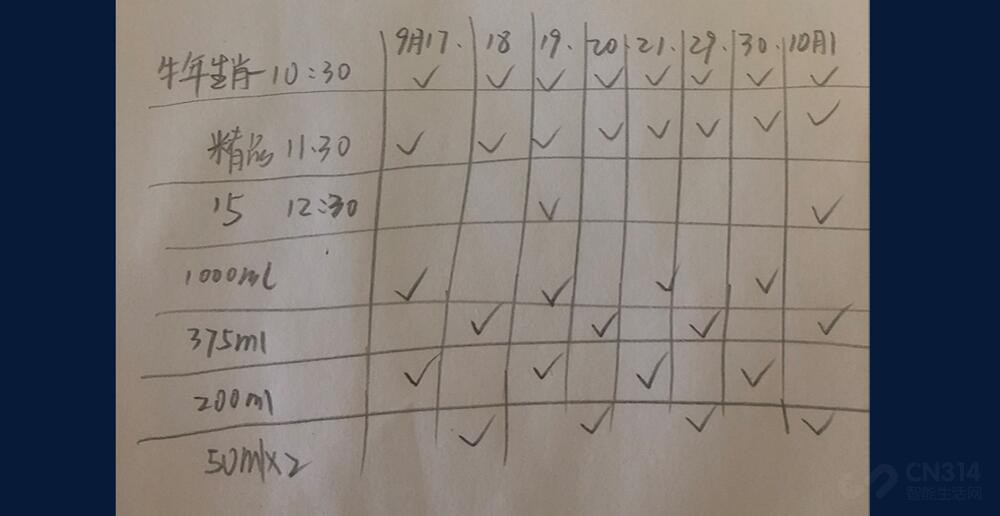 9月17. 18 19. 20. 21. 29. 30. 10月1
牛年生肖-10:30 ✓ ✓ ✓ ✓ ✓ ✓ ✓ ✓
精品 11.30 ✓ ✓ ✓ ✓ ✓ ✓ ✓ ✓
15 12:30 ✓ ✓
1000ml ✓ ✓ ✓ ✓
375ml ✓ ✓ ✓ ✓
200ml ✓ ✓ ✓ ✓
50ml×2 ✓ ✓ ✓ ✓
CN314
智能生活网